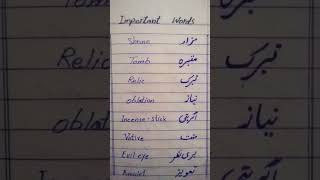 Important Words
Shrine مزار
Tomb مقبرہ
Relic تبرک
oblation نیاز
Incense-stick اگربتی
Votive منت
Evil eye بری نظر
Amulet تعویز